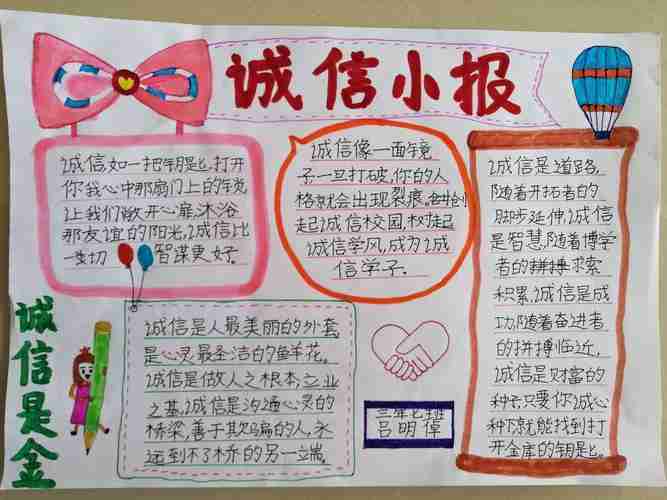 诚信小报
诚信如一把钥匙,打开
你我心中那扇门上的锁
让我们敞开心扉,沐浴
那友谊的阳光,诚信比
一切 智谋更好。
诚信像一面镜
子一旦打破,你的人
格就会出现裂痕,
起诚信校园,树起
诚信学风,成为诚
信学子.
诚信是道路,
随着开拓者的
脚步延伸,诚信
是智慧,随着博学
者的 求索
积累,诚信是成
功,随着奋进者
的拼搏临近,
诚信是财富的
种子,只要你诚心
种下就能找到打
开金库的钥匙。
诚信是金
诚信是人最美丽的外套
是心灵最圣洁的鲜花。
诚信是做人之根本,立业
之基,诚信是沟通心灵的
桥梁,善于欺骗的人,永
远到不了桥的另一端。
三年七班
吕明倬